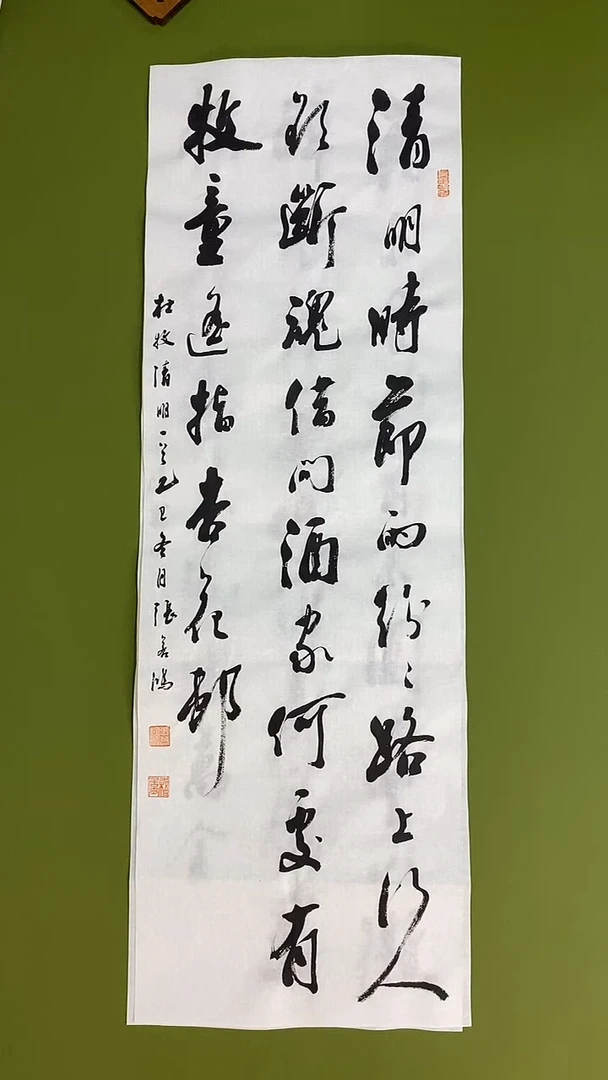 清明時節雨紛々路上行人
欲斷魂借問酒家何處有
牧童遙指杏花邨
杜牧清明一首乙巳冬月張鴻